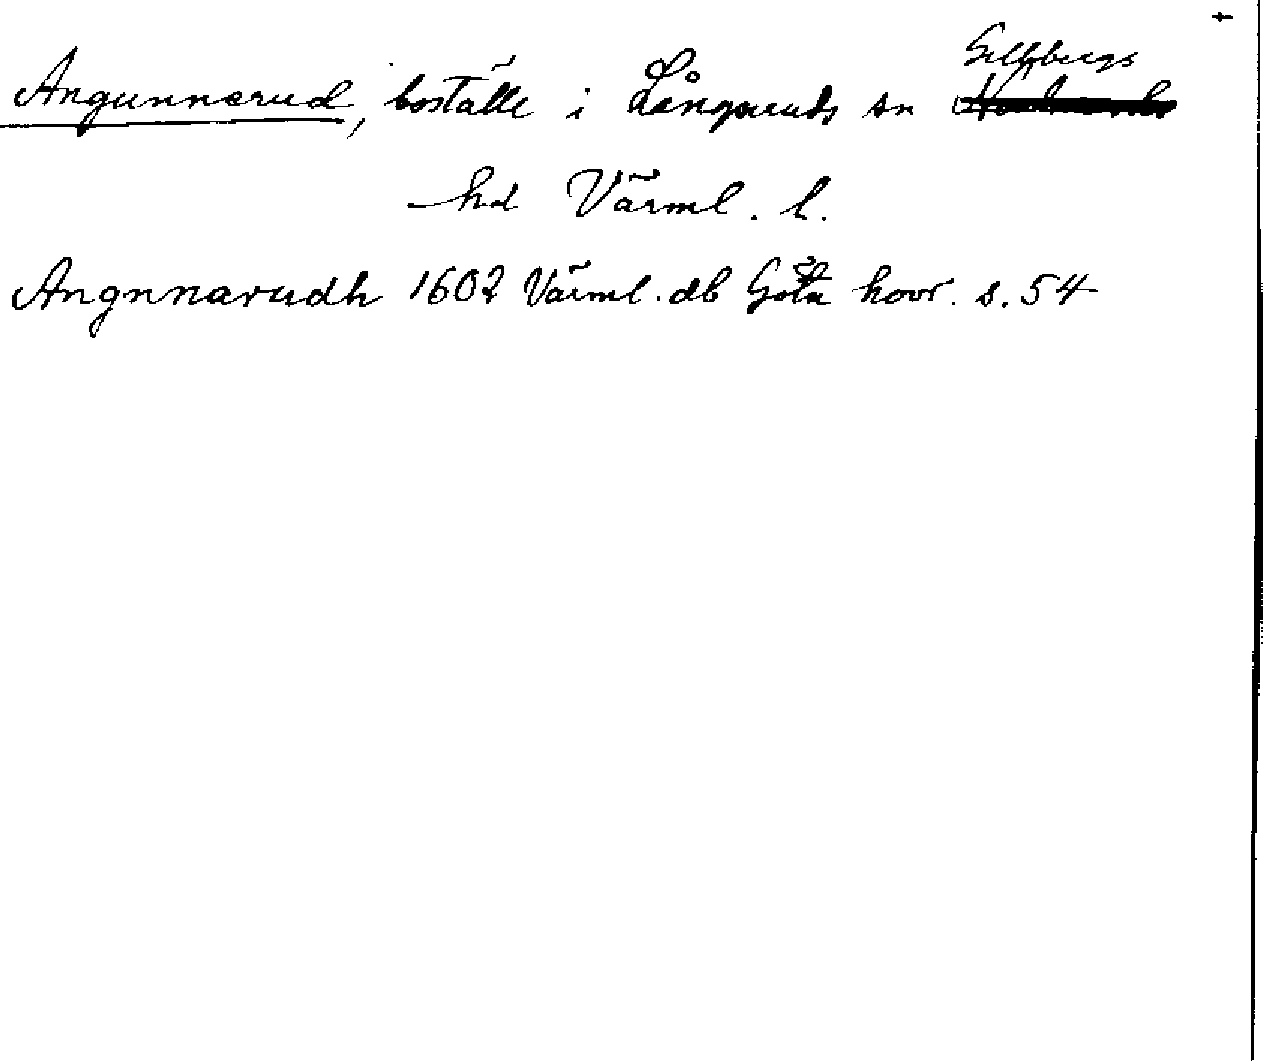 Angunnerud, boställe i Långseruds sn Gillbergs
hd Värml. l.
Angnnarudh 1602 Värml. db Göta hovr. s. 54